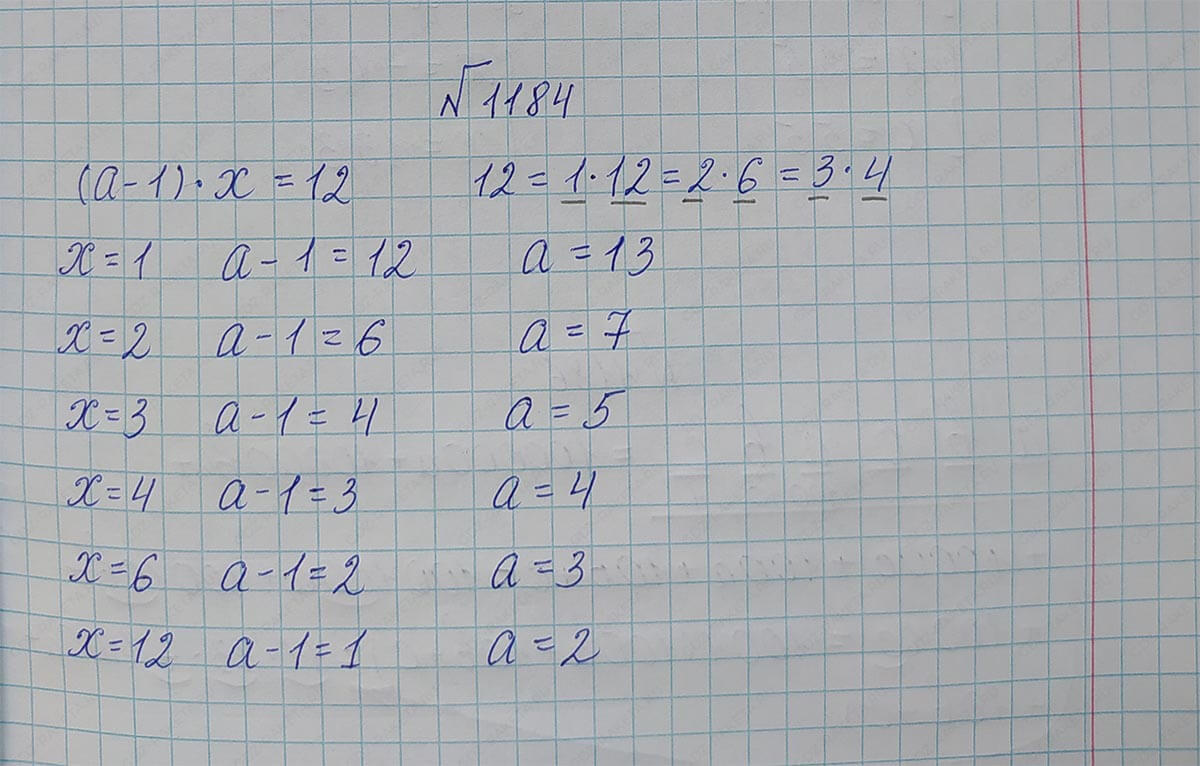 №1184
(a-1)·x=12 12=1·12=2·6=3·4
x=1 a-1=12 a=13
x=2 a-1=6 a=7
x=3 a-1=4 a=5
x=4 a-1=3 a=4
x=6 a-1=2 a=3
x=12 a-1=1 a=2